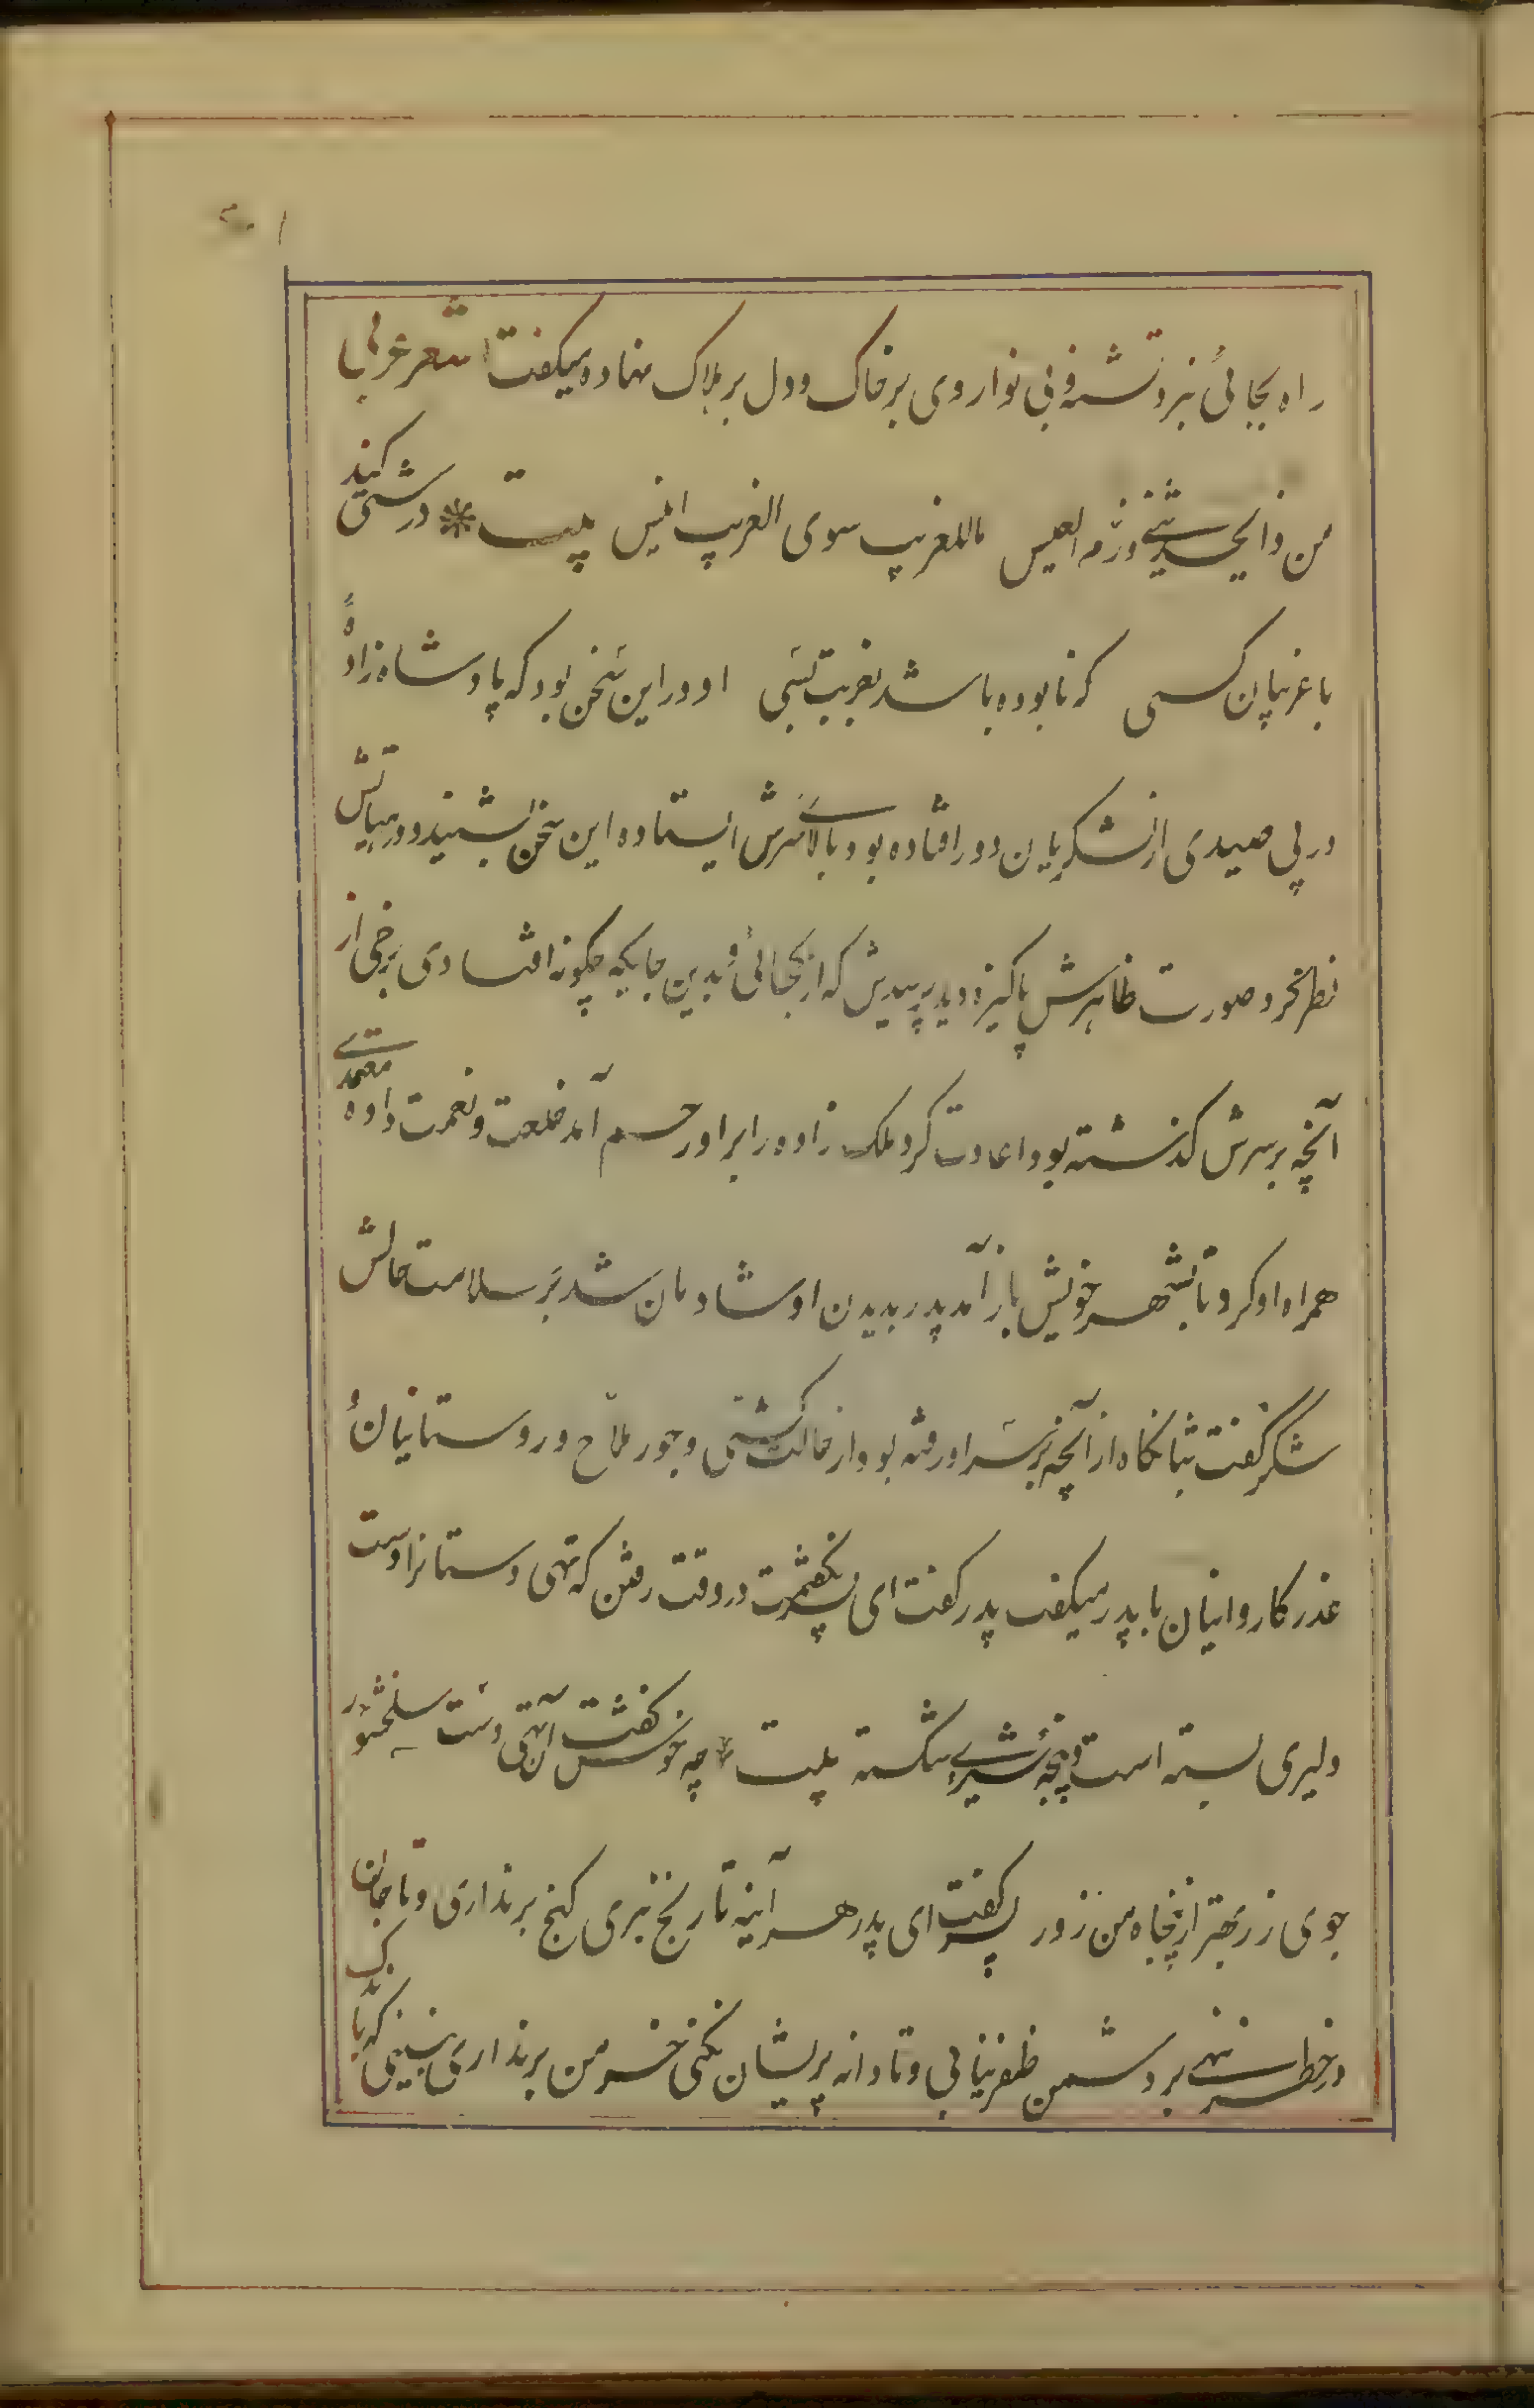 راه بجائی نبرد تشنه و بی نوا روی بر خاک و دل بر هلاک نهاده میکفت شعر عربی
من ذا یحدثنی و زم العیس ماللغریب سوی الغریب انیس بیت * درشتی کند
با غریبان کسی که نابوده باشد بغربت بسی او در این سخن بود که پادشاه زادهٔ
در پی صیدی از لشکریان دور افتاده بود بالای سرش ایستاده این سخن بشنید و در هیاتش
نظر کرد صورت ظاهرش پاکیزه دید پرسیدش که از کجائی و بدین جایکه چکونه افتادی برخی از
آنچه بر سرش کذشته بود اعادت کرد ملک زاده را بر او رحم آمد خلعت و نعمت داده معتمدی
همراه او کرد تا بشهر خویش باز آمد پدر بدیدن او شادمان شد بر سلامت حالش
شکر کفت شبانکاه از آنچه بر سر او رفته بود از حالت کشتی و جور ملاح و روستائیان
غدر کاروانیان با پدر میکفت پدر کفت ای پسر نکفتمت در وقت رفتن که تهی دستانرا دست
دلیری بسته است و پنجهٔ شیری شکسته بیت چه خوش کفت آن تهی دست سلحشور
جوی زر بهتر از پنجاه من زور پسر کفت ای پدر هر آینه تا رنج نبری کنج برنداری و تا جان
در خطر ننهی بر دشمن ظفر نیابی و تا دانه پریشان نکنی خرمن برنداری نبینی که با